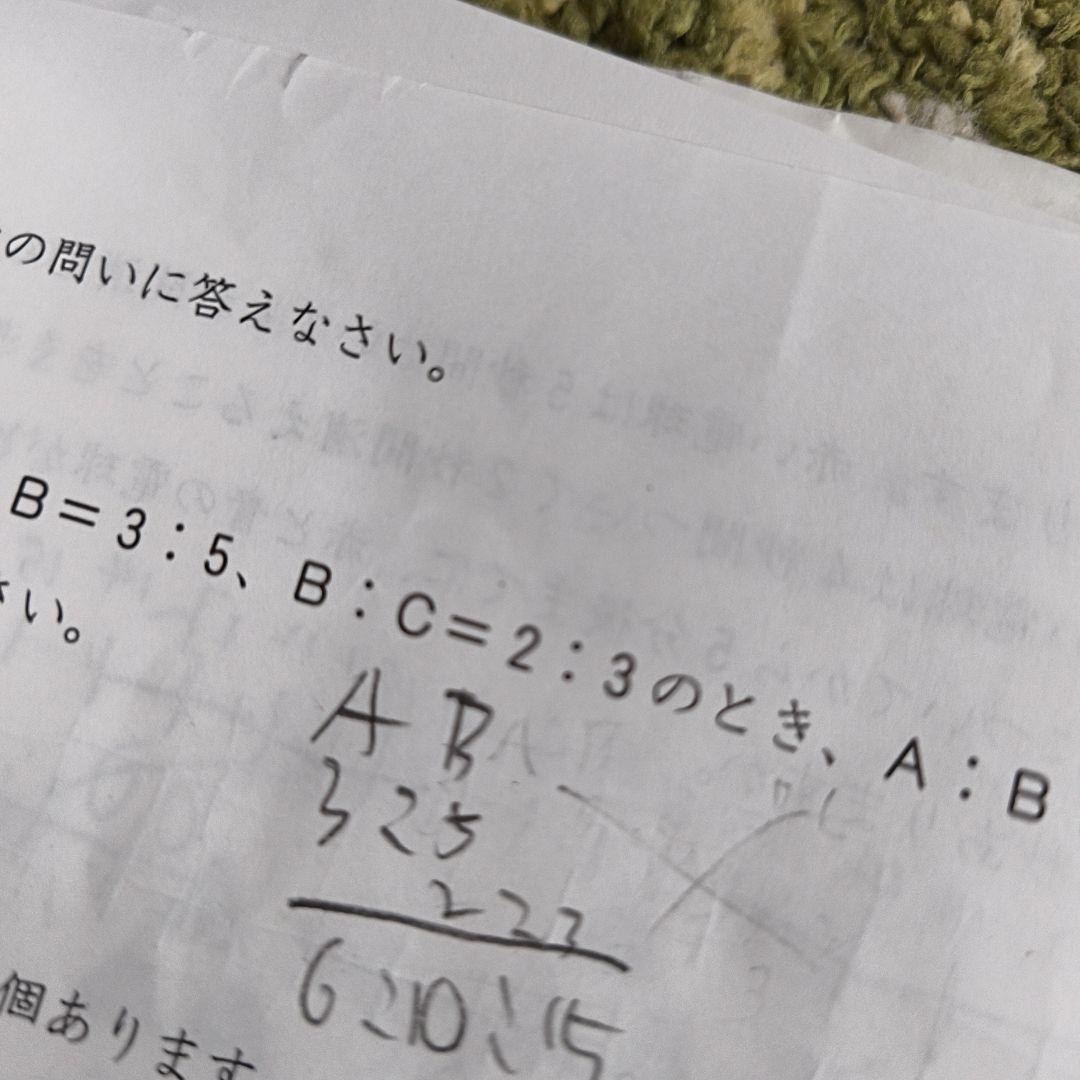 の問いに答えなさい。
B＝3：5、B：C＝2：3のとき、A：B
さい。
A B
3：5
2：3
6：10：15
個あります